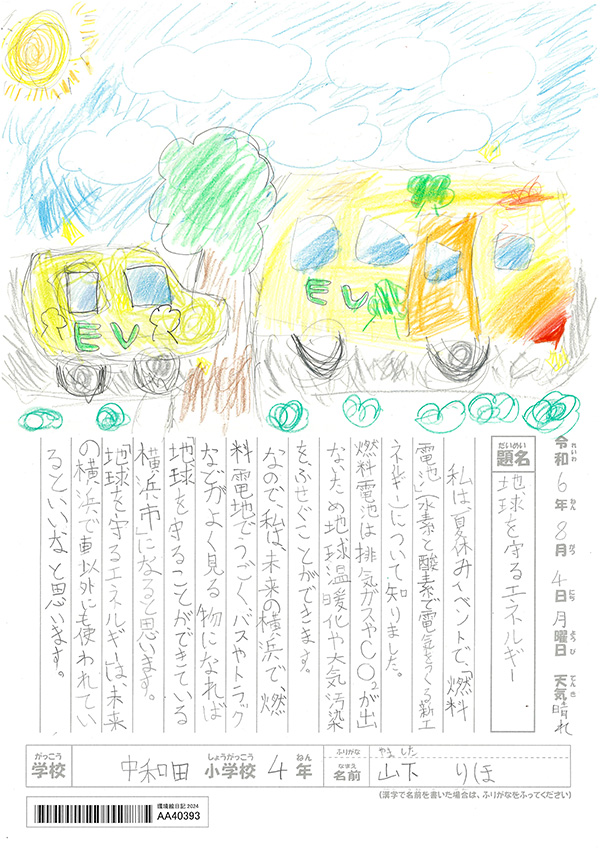 EV
EV
令和6年8月4日月曜日 天気晴れ
れいわ ねん がつ にち ようび てんき
だいめい
題名
地球を守るエネルギー
私は、夏休みイベントで、「燃料
電池」(水素と酸素で電気をつくる新エ
ネルギー)について知りました。
燃料電池は排気ガスやCO2が出
ないため地球温暖化や大気汚染
をふせぐことができます。
なので、私は、未来の横浜で、燃
料電地でうごく、バスやトラック
などがよく見る物になれば
「地球を守ることができている
横浜市」になると思います。
「地球を守るエネルギー」は、未来
の横浜で車以外にも使われてい
るといいなと思います。
がっこう しょうがっこう ねん ふりがな やました
学校 中和田 小学校 4年 なまえ 名前 山下 りほ
(漢字で名前を書いた場合は、ふりがなをふってください)
環境絵日記 2024
AA40393